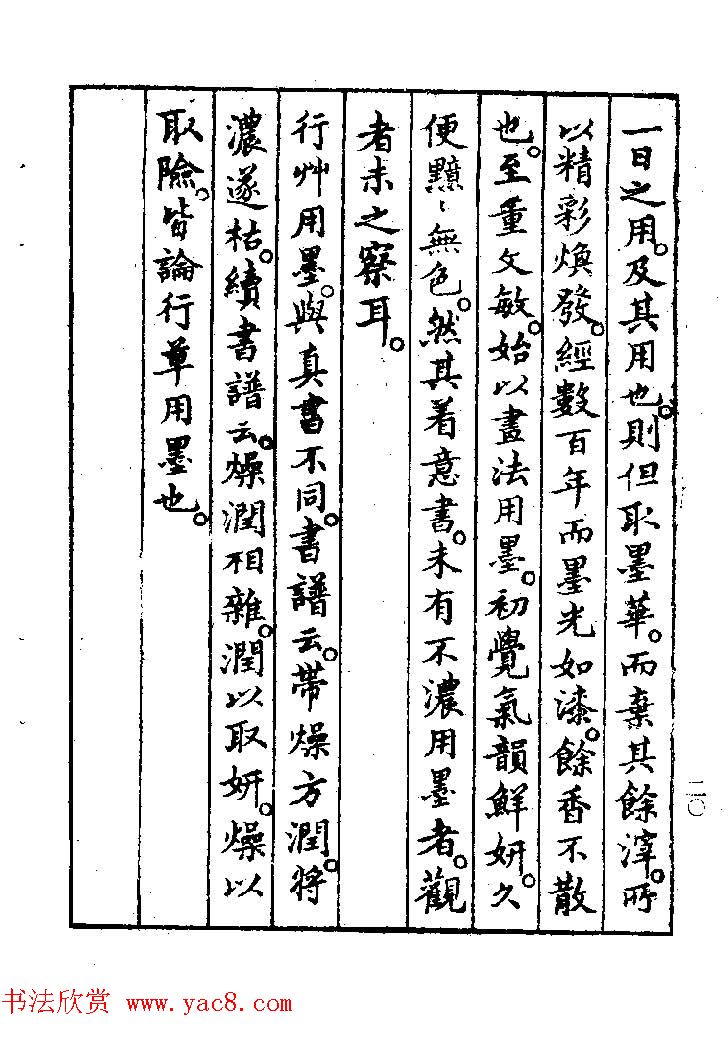 一日之用。及其用也。則但取墨華。而棄其餘滓。所
以精彩煥發。經數百年而墨光如漆。餘香不散
也。至董文敏。始以畫法用墨。初覺氣韻鮮妍。久
便黯〻無色。然其着意書。未有不濃用墨者。觀
者未之察耳。
行艸用墨。與真書不同。書譜云。帶燥方潤。將
濃遂枯。續書譜云。燥潤相雜。潤以取妍。燥以
取險。皆論行草用墨也。
二〇
书法欣赏 www.yac8.com